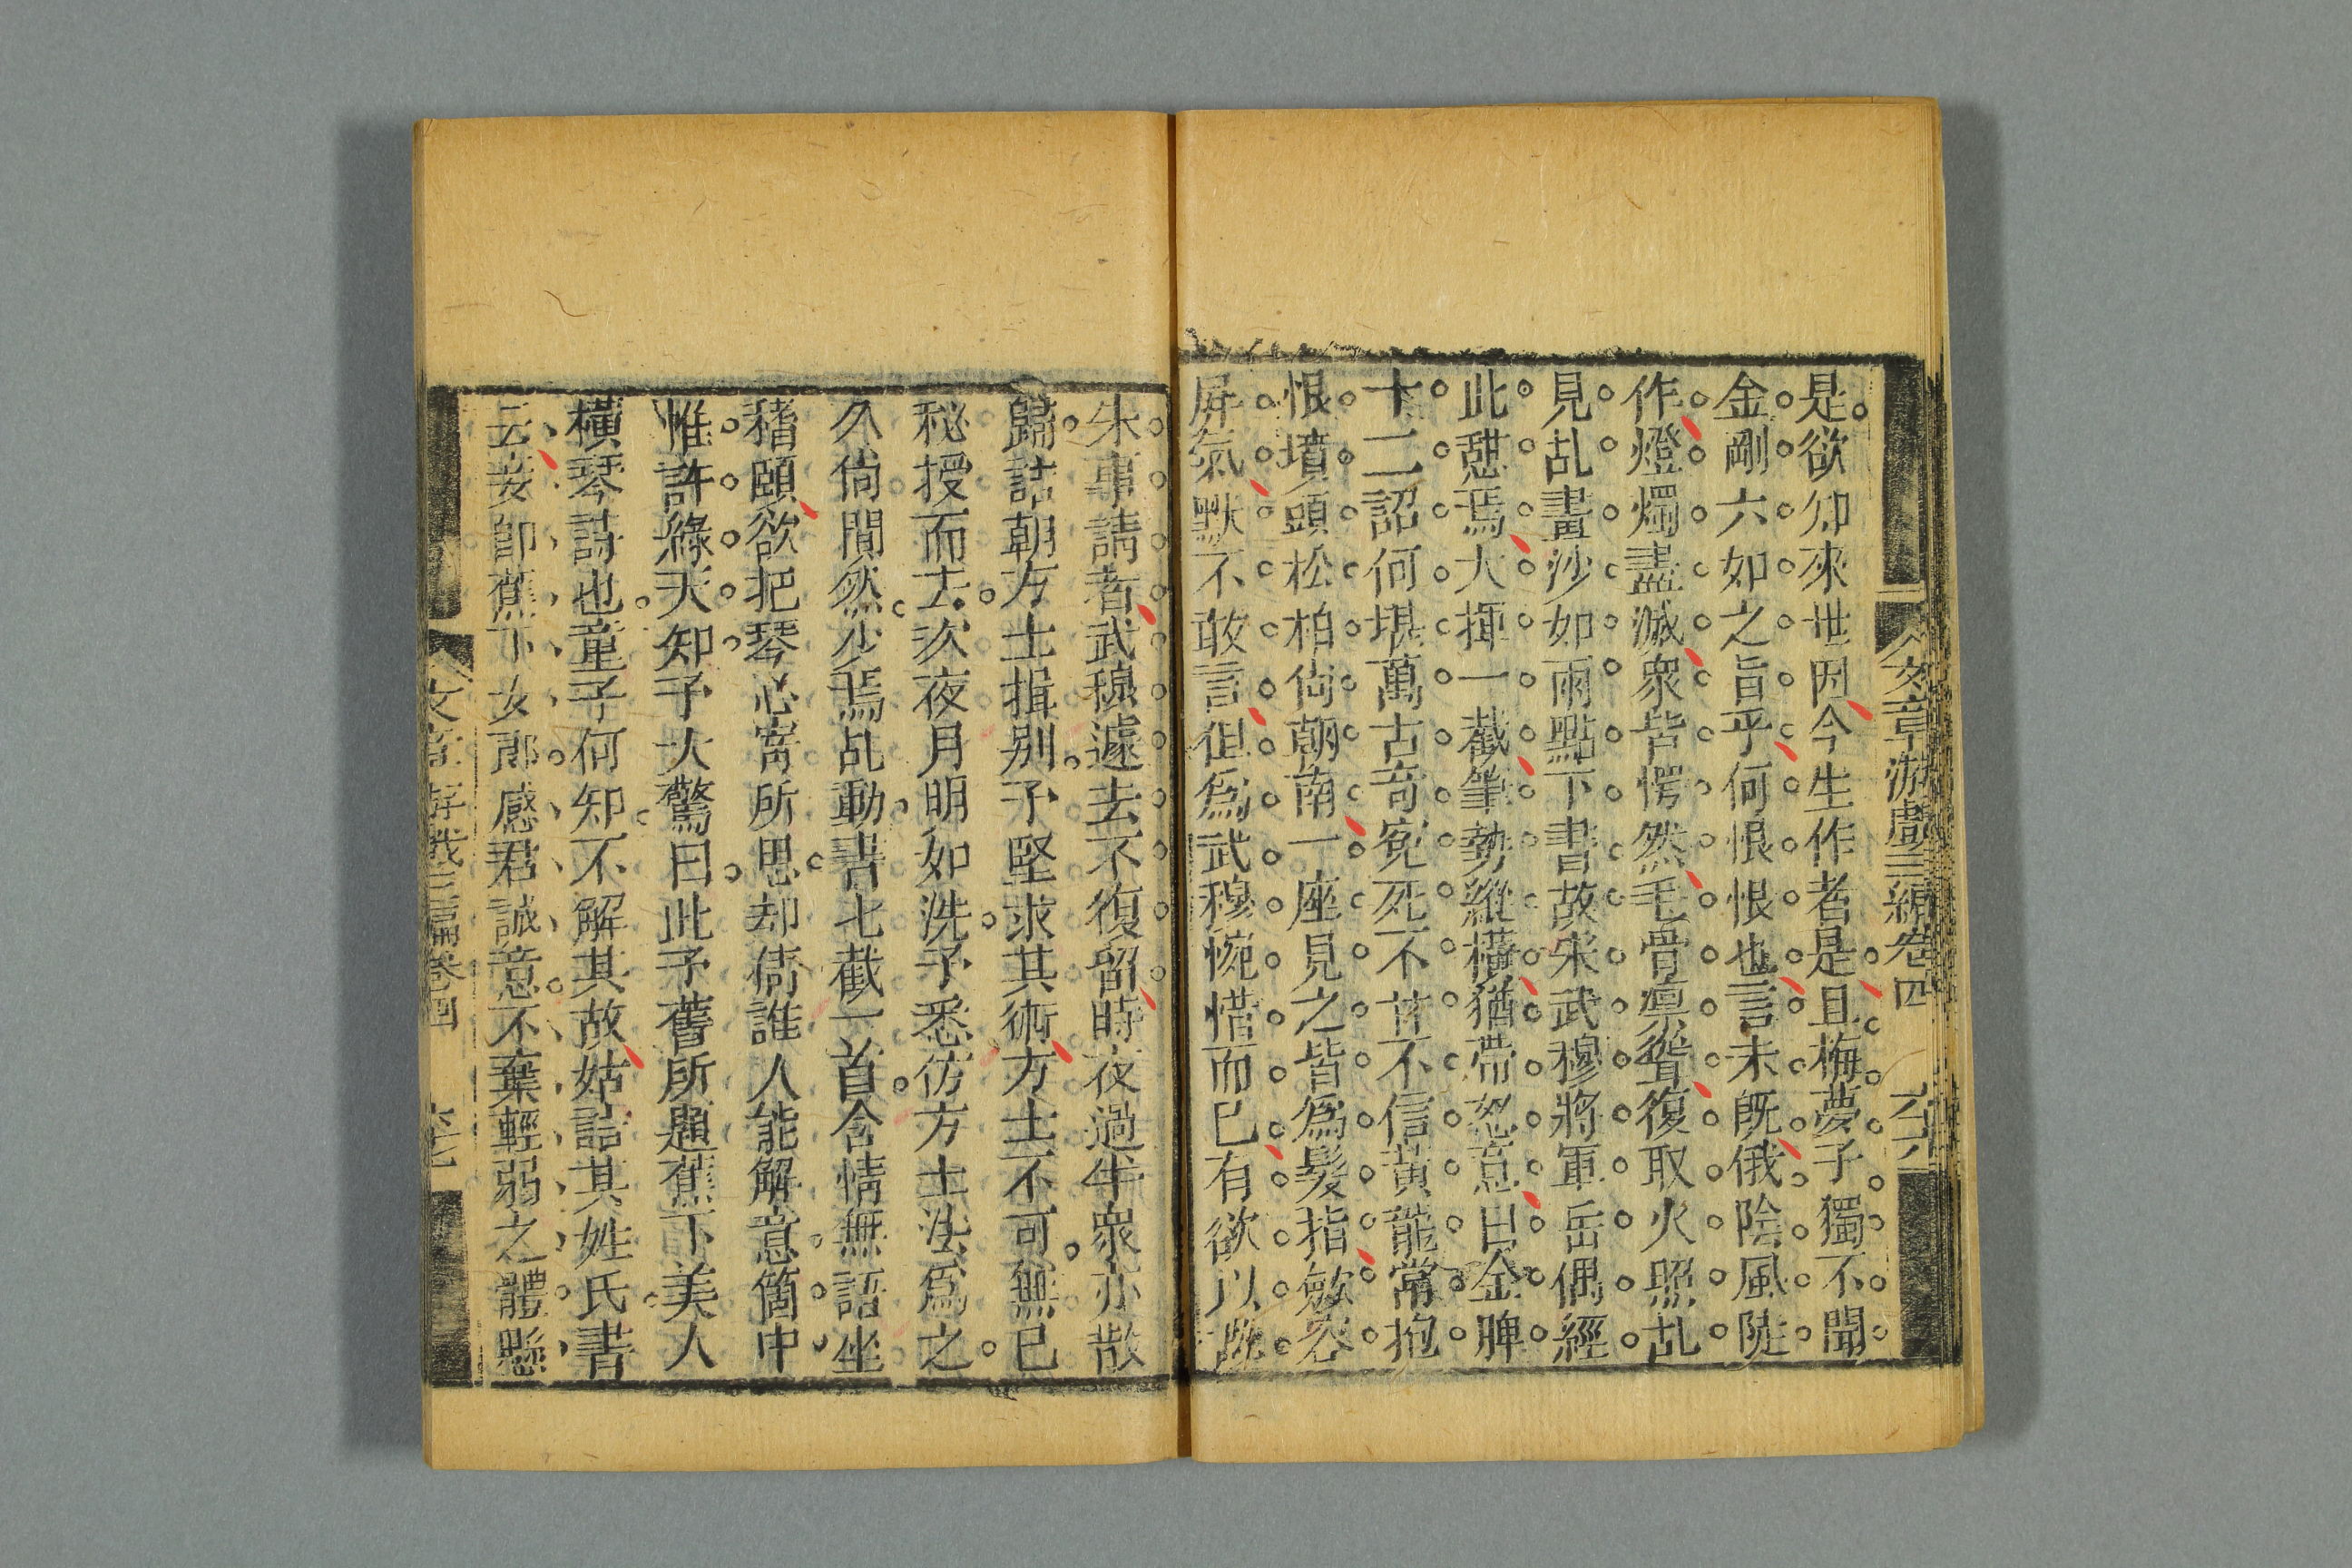 文章游戲三編卷四
是欲知來世因今生作者是且梅夢子獨不聞
金剛六如之旨乎何恨恨也言未旣俄陰風陡
作燈燭盡滅衆皆愕然毛骨凛聳復取火照乩
見乩畫沙如雨點下書故宋武穆將軍岳偶經
此憇焉大揮一截筆勢縱橫猶帶怒意曰金牌
十二詔何堪萬古竒寃死不甘不信黃龍常抱
恨墳頭松柏尙朝南一座見之皆爲髮指斂容
屏氣默不敢言但爲武穆惋惜而已有欲以
宋事請者武穆遽去不復留時夜過半衆亦散
歸詰朝方士揖别予堅求其術方士不可無已
秘授而去次夜月明如洗予悉仿方士法爲之
久尙間然少焉乩動書七截一首含情無語坐
搘頤欲把琴心寄所思却倩誰人能解意箇中
惟許綠天知予大驚曰此予舊所題蕉下美人
橫琴詩也童子何知不解其故姑詰其姓氏書
云妾卽蕉下女郎感君誠意不棄輕弱之體懸
文章游戲三編卷四